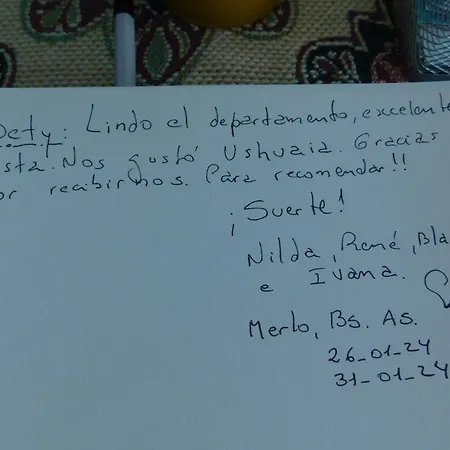 Dety: Lindo el departamento, excelente
ista. Nos gustó Ushuaia. Gracias
or recibirnos. Para recomendar!!
¡Suerte!
Nilda, René, Bla
e Ivana.
Merlo, Bs. As.
26-01-24
31-01-24